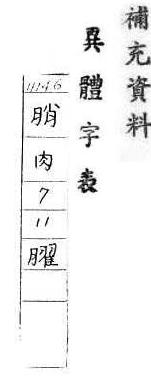 補充資料
異體字表
4146
䏴
肉
7
11
臞